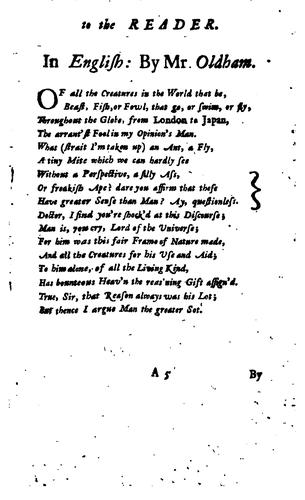 to the READER.
In Engliſh: By Mr. Oldham.
OF all the Creatures in the World that be,
Beaſt, Fiſh, or Fowl, that go, or ſwim, or fly,
Throughout the Globe, from London to Japan,
The arrant'ſt Fool in my Opinion's Man.
What (ſtrait I'm taken up) an Ant, a Fly,
A tiny Mite which we can hardly ſee
Without a Perſpective, a ſilly Aſs,
Or freakiſh Ape? dare you affirm that theſe
Have greater Senſe than Man? Ay, queſtionleſs.
Doctor, I find you're ſhock'd at this Diſcourſe;
Man is, you cry, Lord of the Univerſe;
For him was this fair Frame of Nature made,
And all the Creatures for his Uſe and Aid;
To him alone, of all the Living Kind,
Has bounteous Heav'n the reas'ning Gift aſſign'd.
True, Sir, that Reaſon always was his Lot;
But thence I argue Man the greater Sot.
A 5
By